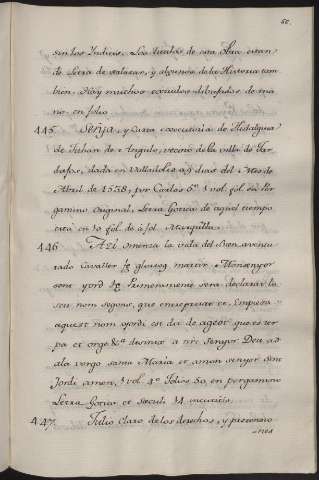 sin los Indices. Los titulos de esta Obra estan
de Letra de Salazar, y algunos de la Historia tam
bien. Hay muchos escudos dibujados de ma
no. en folio.
445 y Carta executoria de Hidalguia
de Julian de Angulo, vecino de la villa de
dada en Valladolid a 9 dias del Mes de
Abril de 1538, por Carlos 5º 1 vol. fol. en Per
gamino Original, Letra Gotica de aquel tiempo
esta en 10 fol. de à fol. Marquilla.
446 Açi comenza la vida del Bien aventu
rado Cavaller glorios martir Monsenyor
sent Jordi Primerament sera declarat lo
seu nom segons, que Empero
aquest nom Jordi est dit de que es ter
pa et orge &ª desinit a nre senyor Deu, a
la verge santa Maria et amon senyor sent
Jordi amen, 1 vol. 4º Folios 50, en pergamino
Letra Gotica et Seculi 14
447 Julio Claro de los derechos, y preemio
-nes